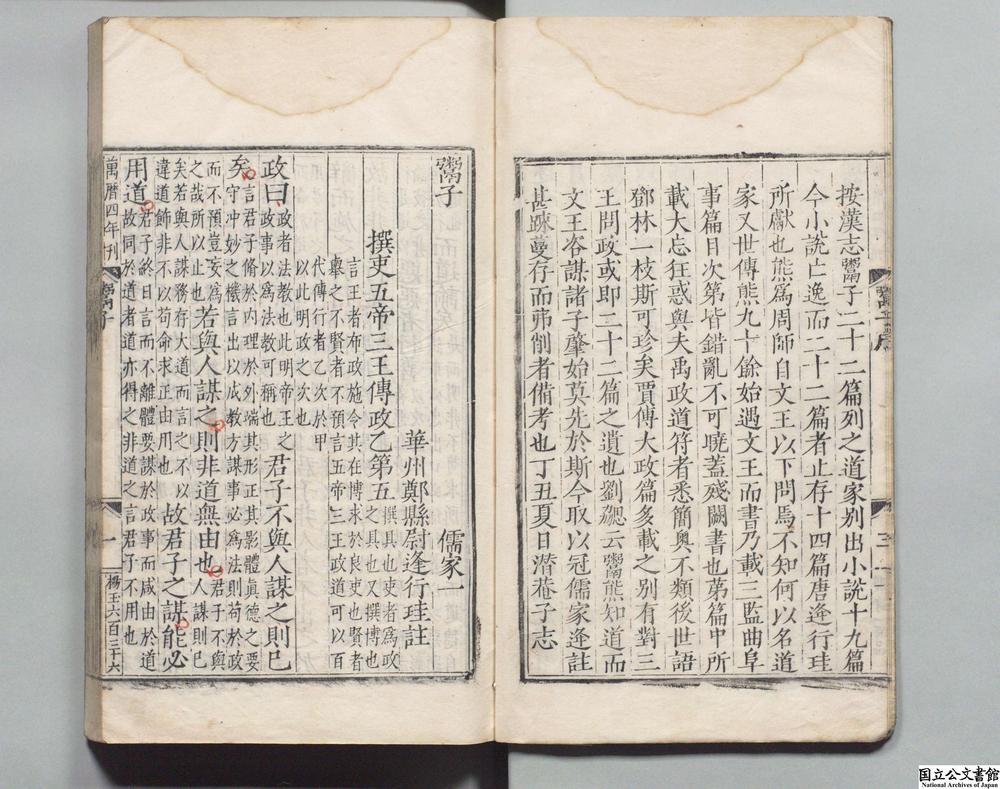 按漢志鬻子二十二篇列之道家别出小說十九篇
今小說亡逸而二十二篇者止存十四篇唐逄行珪
所獻也熊爲周師自文王以下問焉不知何以名道
家又世傳熊九十餘始遇文王而書乃載三監曲阜
事篇目次第皆錯亂不可曉蓋殘闕書也第篇中所
載大忘狂惑與夫禹政道符者悉簡奥不類後世語
鄧林一枝斯可珍矣賈傅大政篇多載之别有對三
王問政或即二十二篇之遺也劉勰云鬻熊知道而
文王咨謀諸子肇始莫先於斯今取以冠儒家逄註
甚踈蔓存而弗削者備考也丁丑夏日潜菴子志
鬻子序
三
鬻子
儒家一
華州鄭縣尉逄行珪註
撰吏五帝三王傳政乙第五
撰具也吏者爲政
之具也又撰博也
言王者布政施令其在博求於良吏也賢者
舉之不賢者不預言五帝三王政道可以百
代傳行者乙次於甲
以此明政之次也
政曰
政者法教也此明帝王之
政事以爲法教可稱也
君子不與人謀之則已
矣
言君子脩於内理於外端其形正其影體眞德之要
守冲妙之機言出以成教方謀事必爲法則苟於政
而不預豈妄爲
之哉所以止也
若與人謀之則非道無由也
君子不與
人謀則已
矣若與人謀務存大道而言之不以
違道飾非不以苟命求正由用也
故君子之謀能必
用道
君子終日言而不離體要謀於政事而咸由於道
故同於道者道亦得之非道之言君子不用也
萬曆四年刊
鬻子
一
楊玉六百三十六
国立公文書館
National Archives of Japan